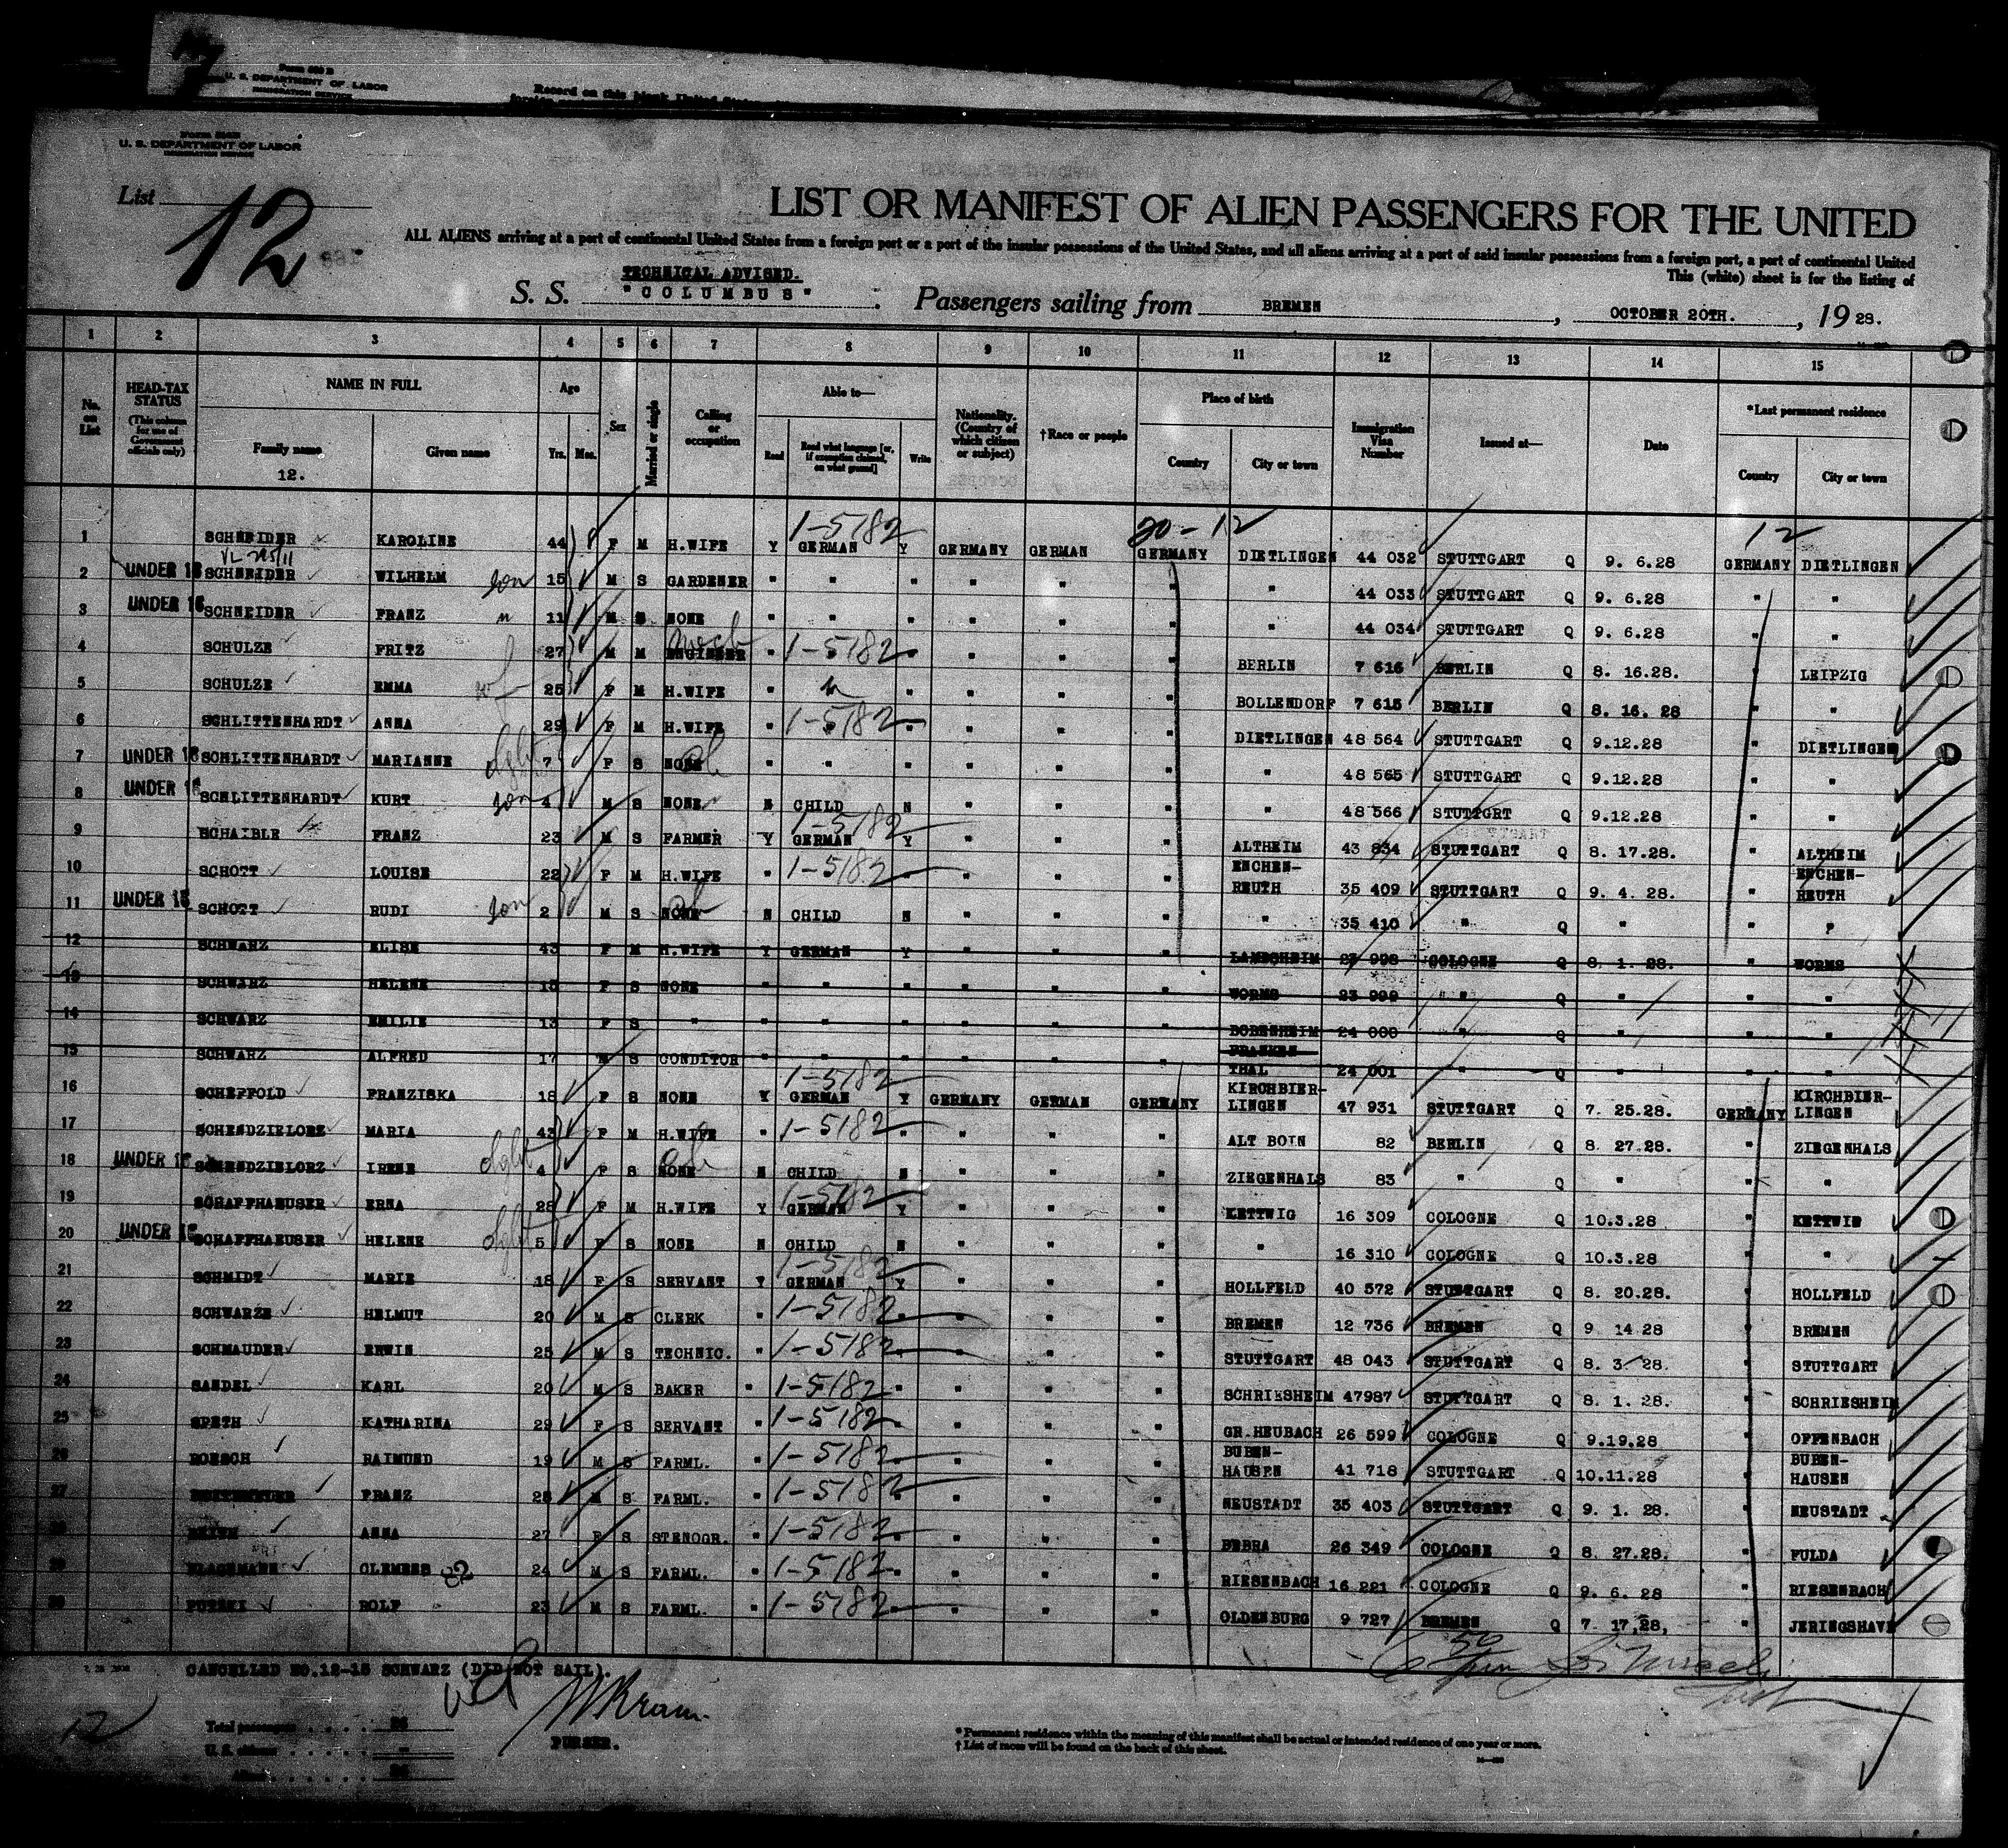 Form 500 B
U. S. DEPARTMENT OF LABOR
IMMIGRATION SERVICE
Record on this blank United States
U. S. DEPARTMENT OF LABOR
IMMIGRATION SERVICE
List 12
LIST OR MANIFEST OF ALIEN PASSENGERS FOR THE UNITED
ALL ALIENS arriving at a port of continental United States from a foreign port or a port of the insular possessions of the United States, and all aliens arriving at a port of said insular possessions from a foreign port, a port of continental United
This (white) sheet is for the listing of
TECHNICAL ADVISED.
S. S. "COLUMBUS" Passengers sailing from BREMEN, OCTOBER 20TH., 1928.
1 2 3 4 5 6 7 8 9 10 11 12 13 14 15
No. on List
HEAD-TAX STATUS (This column for use of Government officials only)
NAME IN FULL Family name Given name
12.
Age Yrs. Mos.
Sex
Married or single
Calling or occupation
Able to— Read Read what language [or, if exemption claimed, on what ground] Write
Nationality. (Country of which citizen or subject)
†Race or people
Place of birth Country City or town
Immigration Visa Number
Issued at—
Date
*Last permanent residence Country City or town
20-12 12
1 SCHNEIDER KAROLINE 44 F M H.WIFE Y 1-5182 GERMAN Y GERMANY GERMAN GERMANY DIETLINGEN 44 032 STUTTGART Q 9. 6.28 GERMANY DIETLINGEN
2 UNDER 16 SCHNEIDER WILHELM son 15 M S GARDENER " " " " " " " 44 033 STUTTGART Q 9. 6.28 " "
3 UNDER 16 SCHNEIDER FRANZ " 11 M S NONE " " " " " " " 44 034 STUTTGART Q 9. 6.28 " "
4 SCHULZE FRITZ 27 M M ENGINEER " 1-5182 " " " " BERLIN 7 616 BERLIN Q 8. 16.28. " LEIPZIG
5 SCHULZE EMMA wf 25 F M H.WIFE " " " " " " BOLLENDORF 7 615 BERLIN Q 8. 16. 28 " "
6 SCHLITTENHARDT ANNA 29 F M H.WIFE " 1-5182 " " " " DIETLINGEN 48 564 STUTTGART Q 9.12.28 " DIETLINGEN
7 UNDER 16 SCHLITTENHARDT MARIANNE dght 7 F S NONE " " " " " " " 48 565 STUTTGART Q 9.12.28 " "
8 UNDER 16 SCHLITTENHARDT KURT son 4 M S NONE N CHILD N " " " " 48 566 STUTTGRT Q 9.12.28 " "
9 SCHAIBLE FRANZ 23 M S FARMER Y 1-5182 GERMAN Y " " " ALTHEIM 43 834 STUTTGART Q 8. 17.28. " ALTHEIM
10 SCHOTT LOUISE 22 F M H.WIFE " 1-5182 " " " " ENCHEN-REUTH 35 409 STUTTGART Q 9. 4. 28. " ENCHEN-REUTH
11 UNDER 16 SCHOTT RUDI son 2 M S NONE N CHILD N " " " " 35 410 " Q " " "
12 SCHWARZ ELISE 43 F M H.WIFE Y GERMAN Y " " " LAMBSHEIM 23 998 COLOGNE Q 8. 1. 28. " WORMS
13 SCHWARZ HELENE 15 F S NONE " " " " " " WORMS 23 999 " Q " " "
14 SCHWARZ EMILIE 13 F S " " " " " " " BOBENHEIM 24 000 " Q " " "
15 SCHWARZ ALFRED 17 M S CONDITOR " " " " " " FRANKEN THAL 24 001 " Q " " "
16 SCHEFFOLD FRANZISKA 18 F S NONE Y 1-5182 GERMAN Y GERMANY GERMAN GERMANY KIRCHBIER-LINGEN 47 931 STUTTGART Q 7. 25.28. GERMANY KIRCHBIER-LINGEN
17 SCHENDZIELORZ MARIA 43 F M H.WIFE " 1-5182 " " " " ALT BOIN 82 BERLIN Q 8. 27.28. " ZIEGENHALS
18 UNDER 16 SCHENDZIELORZ IRENE dght 4 F S NONE N CHILD N " " " ZIEGENHALS 83 " Q " " "
19 SCHAFFHAEUSER ERNA 28 F M H.WIFE Y 1-5182 GERMAN Y " " " KETTWIG 16 309 COLOGNE Q 10.3.28 " KETTWIG
20 UNDER 16 SCHAFFHAEUSER HELENE dght 5 F S NONE N CHILD N " " " " 16 310 COLOGNE Q 10.3.28 " "
21 SCHMIDT MARIE 18 F S SERVANT Y 1-5182 GERMAN Y " " " HOLLFELD 40 572 STUTTGART Q 8. 20.28. " HOLLFELD
22 SCHWARZE HELMUT 20 M S CLERK " 1-5182 " " " " BREMEN 12 736 BREMEN Q 9 14.28 " BREMEN
23 SCHMAUDER ERWIN 25 M S TECHNIC. " 1-5182 " " " " STUTTGART 48 043 STUTTGART Q 8. 3 28. " STUTTGART
24 SANDEL KARL 20 M S BAKER " 1-5182 " " " " SCHRIESHEIM 47987 STUTTGART Q 8. 1. 28. " SCHRIESHEIM
25 SPETH KATHARINA 29 F S SERVANT " 1-5182 " " " " GR.HEUBACH 26 599 COLOGNE Q 9.19.28 " OFFENBACH
26 ROESCH RAIMUND 19 M S FARML. " 1-5182 " " " " BUBEN-HAUSEN 41 718 STUTTGART Q 10.11.28 " BUBEN-HAUSEN
27 FRANZ 28 M S FARML. " 1-5182 " " " " NEUSTADT 35 403 STUTTGART Q 9. 1. 28. " NEUSTADT
28 ANNA 27 F S STENOGR. " 1-5182 " " " " BEBRA 26 349 COLOGNE Q 8. 27.28. " FULDA
29 CLEMENS 24 M S FARML. " 1-5182 " " " " RIESENBACH 16 221 COLOGNE Q 9. 6. 28 " RIESENBACH
30 ROLF 23 M S FARML. " 1-5182 " " " " OLDENBURG 9 727 BREMEN Q 7. 17,28, " JERINGSHAVE
CANCELLED NO.12-15 SCHWARZ (DID NOT SAIL).
12
Total passengers 26
U. S. citizens -
Aliens 26
PURSER.
* Permanent residence within the meaning of this manifest shall be actual or intended residence of one year or more.
† List of races will be found on the back of this sheet.